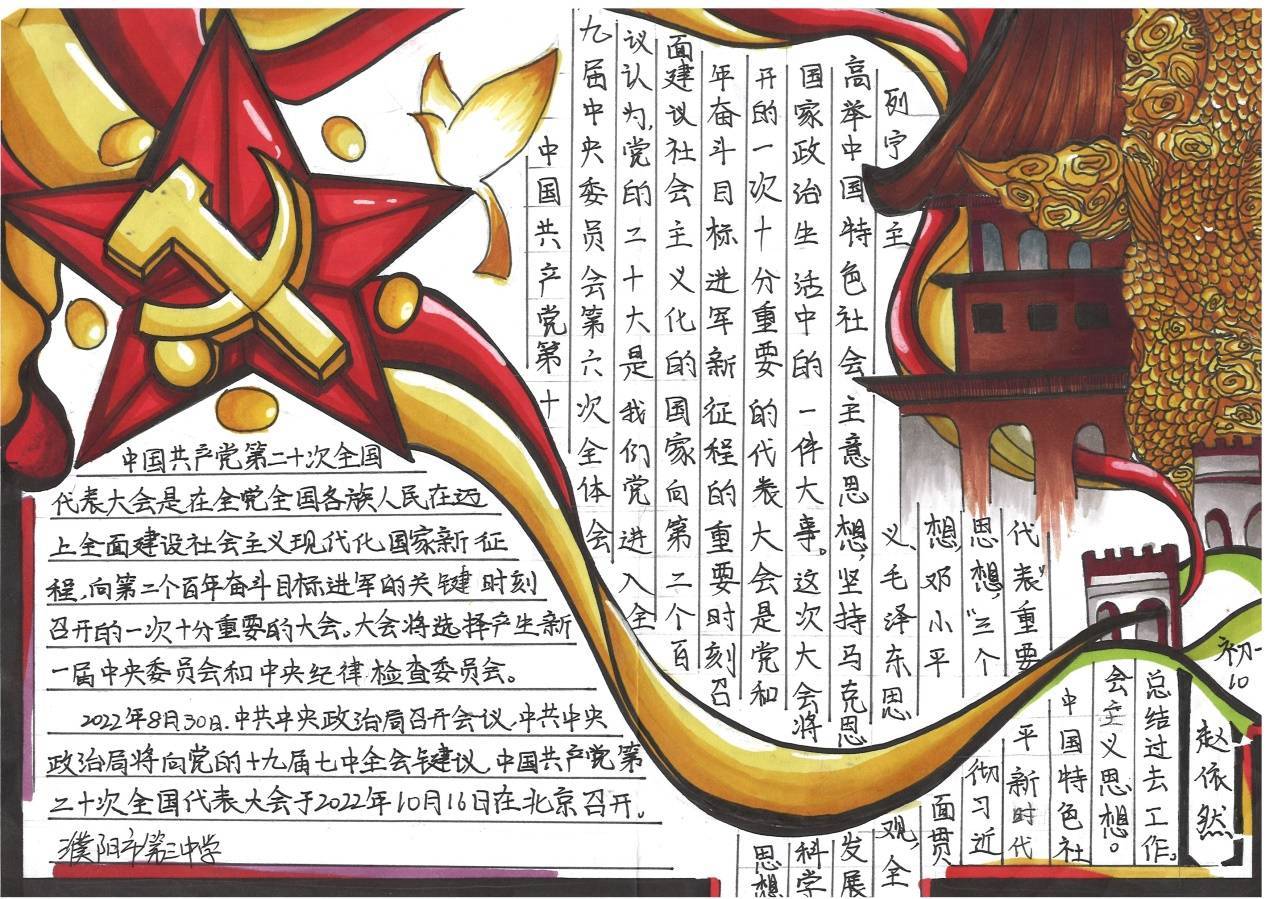 中国共产党第二十次全国
代表大会是在全党全国各族人民在迈
上全面建设社会主义现代化国家新征
程,向第二个百年奋斗目标进军的关键时刻
召开的一次十分重要的大会。大会将选择产生新
一届中央委员会和中央纪律检查委员会。
2022年8月30日.中共中央政治局召开会议,中共中央
政治局将向党的十九届七中全会建议,中国共产党第
二十次全国代表大会于2022年10月16日在北京召开。
濮阳市第三中学
中国共产党第十
九届中央委员会第六次全体会
议认为,党的二十大是我们党进入全
面建议社会主义化的国家向第二个百
年奋斗目标进军新征程的重要时刻召
开的一次十分重要的代表大会是党和
国家政治生活中的一件大事。这次大会将
高举中国特色社会主意思想,坚持马克思
列宁主义、毛泽东思
想,邓小平
思想,“三个
代表”重要
思想
科学
发展
观,全
面贯
彻习近
平新时代
中国特色社
会主义思想。
总结过去工作。
初一10
赵依然